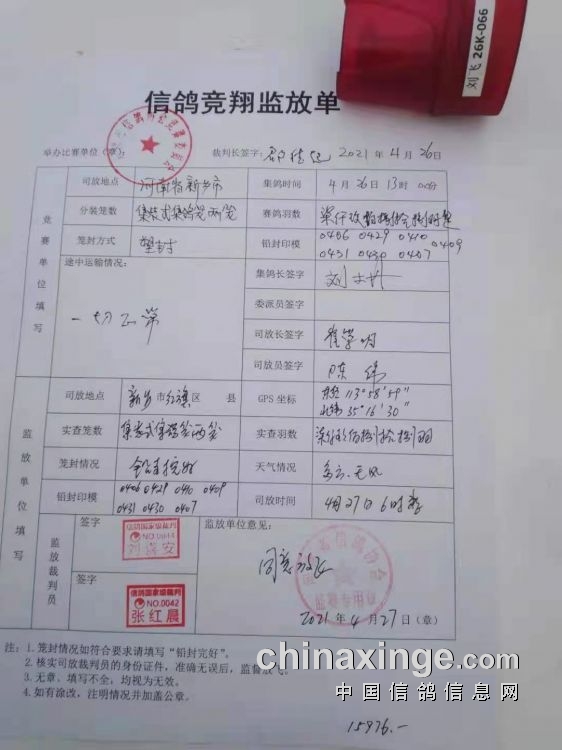 刘飞 26K-066
信鸽竞翔监放单
举办比赛单位(章): 裁判长签字: 2021 年 4 月 26 日
竞赛单位填写
司放地点 河南省新乡市 集鸽时间 4 月 26 日 13 时 00分
分装笼数 集装式集鸽笼两笼 赛鸽羽数
笼封方式 塑封 铅封印模 0406 0429 0410 0409
0431 0430 0407
途中运输情况: 一切正常
集鸽长签字
委派员签字
司放长签字 崔荣明
司放员签字 陈伟
监放单位填写
司放地点 新乡 市 红旗 区 县 GPS 坐标 东经 113°58′59″
北纬 35°16′30″
实查笼数 集装式集鸽笼两笼 实查羽数
笼封情况 铅封完好 天气情况 多云、无风
铅封印模 0406 0429 0410 0409
0431 0430 0407
司放时间 4月27日 6时整
监放裁判员
签字 信鸽国家级裁判
NO.0044
刘喜安
签字 信鸽国家级裁判
NO.0042
张红晨
监放单位意见:
同意放飞
2021 年 4 月 27 日(章)
注:1.笼封情况如符合要求请填写“铅封完好”。
2.核实司放裁判员的身份证件,准确无误后,监督放飞。
3.无章、填写不全,均视为无效。
4.如有涂改,注明情况并加盖公章。
chinaxinge.com
中国信鸽信息网
15976.-